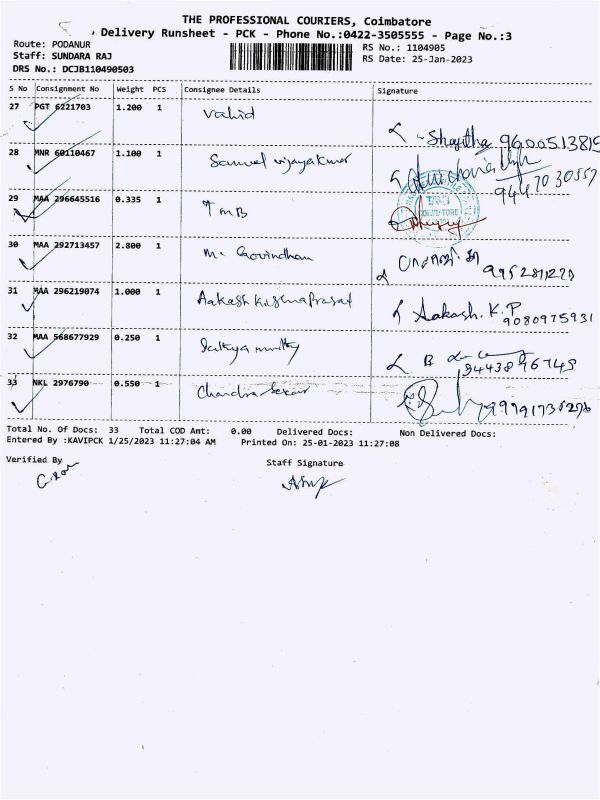 THE PROFESSIONAL COURIERS, Coimbatore
Delivery Runsheet - PCK - Phone No.:0422-3505555 - Page No.:3
Route: PODANUR
RS No.: 1104905
Staff: SUNDARA RAJ
RS Date: 25-Jan-2023
DRS No.: DCJB110490503
S No Consignment No Weight PCS Consignee Details Signature
27 PGT 6221703 1.200 1 Vahid
Shajitha 9600513815
28 MNR 60110467 1.100 1 Samuel vijayakumar
9447030557
29 MAA 296645516 0.335 1 TMB
COIMBATORE
30 MAA 292713457 2.800 1 M. Govindhan
31 MAA 296219074 1.000 1 Aakash Krishnaprasad
Aakash. K. P
9080975931
32 MAA 568677929 0.250 1 Sathya murthy
B
9443896745
33 NKL 2976790 0.550 1 Chandra Sekar
Total No. Of Docs: 33 Total COD Amt: 0.00 Delivered Docs: Non Delivered Docs:
Entered By :KAVIPCK 1/25/2023 11:27:04 AM Printed On: 25-01-2023 11:27:08
Verified By
Staff Signature